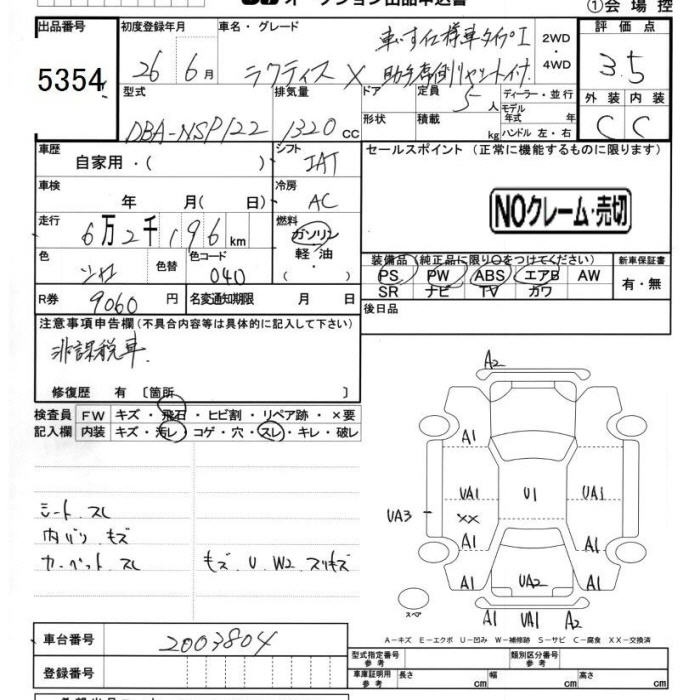 オークション出品申込書
①会場控
出品番号
5354
初度登録年月
26 6月
車名・グレード
車いす仕様車タイプI
ラクティス X 助手席側リヤシート付
2WD
・
4WD
評価点
3.5
外装 内装
C C
型式
DBA-NSP122
排気量
1320 cc
ドア
形状
定員
5人
積載 kg
ディーラー・並行
モデル
年式 年
ハンドル 左・右
車歴
自家用・( )
シフト
IAT
セールスポイント (正常に機能するものに限ります)
NOクレーム・売切
車検
年 月( 日)
冷房
AC
走行
6万2千196km
燃料
ガソリン
軽油
( )
色
シロ
色替
色コード
040
装備品(純正品に限り〇をつけてください)
PS PW ABS エアB AW
SR ナビ TV カワ
新車保証書
有・無
R券
9060円
名変通知期限 月 日
後日品
注意事項申告欄(不具合内容等は具体的に記入して下さい)
非課税車.
修復歴 有 〔箇所 〕
検査員
記入欄
FW キズ・飛石・ヒビ割・リペア跡・×要
内装 キズ・汚レ・コゲ・穴・スレ・キレ・破レ
シート スレ
内バリ キズ
カーペット スレ
キズ U W2 スリキズ
A2
A1 A1
UA1 U1 UA1
UA3
XX
A1 A1
A1 UA2 A1
A1 UA1 A2
スペア
A-キズ E-エクボ U-凹み W-補修跡 S-サビ C-腐食 XX-交換済
車台番号
2003804
登録番号
型式指定番号
参考
類別区分番号
参考
車庫証明用
参考
長さ cm 幅 cm 高さ cm